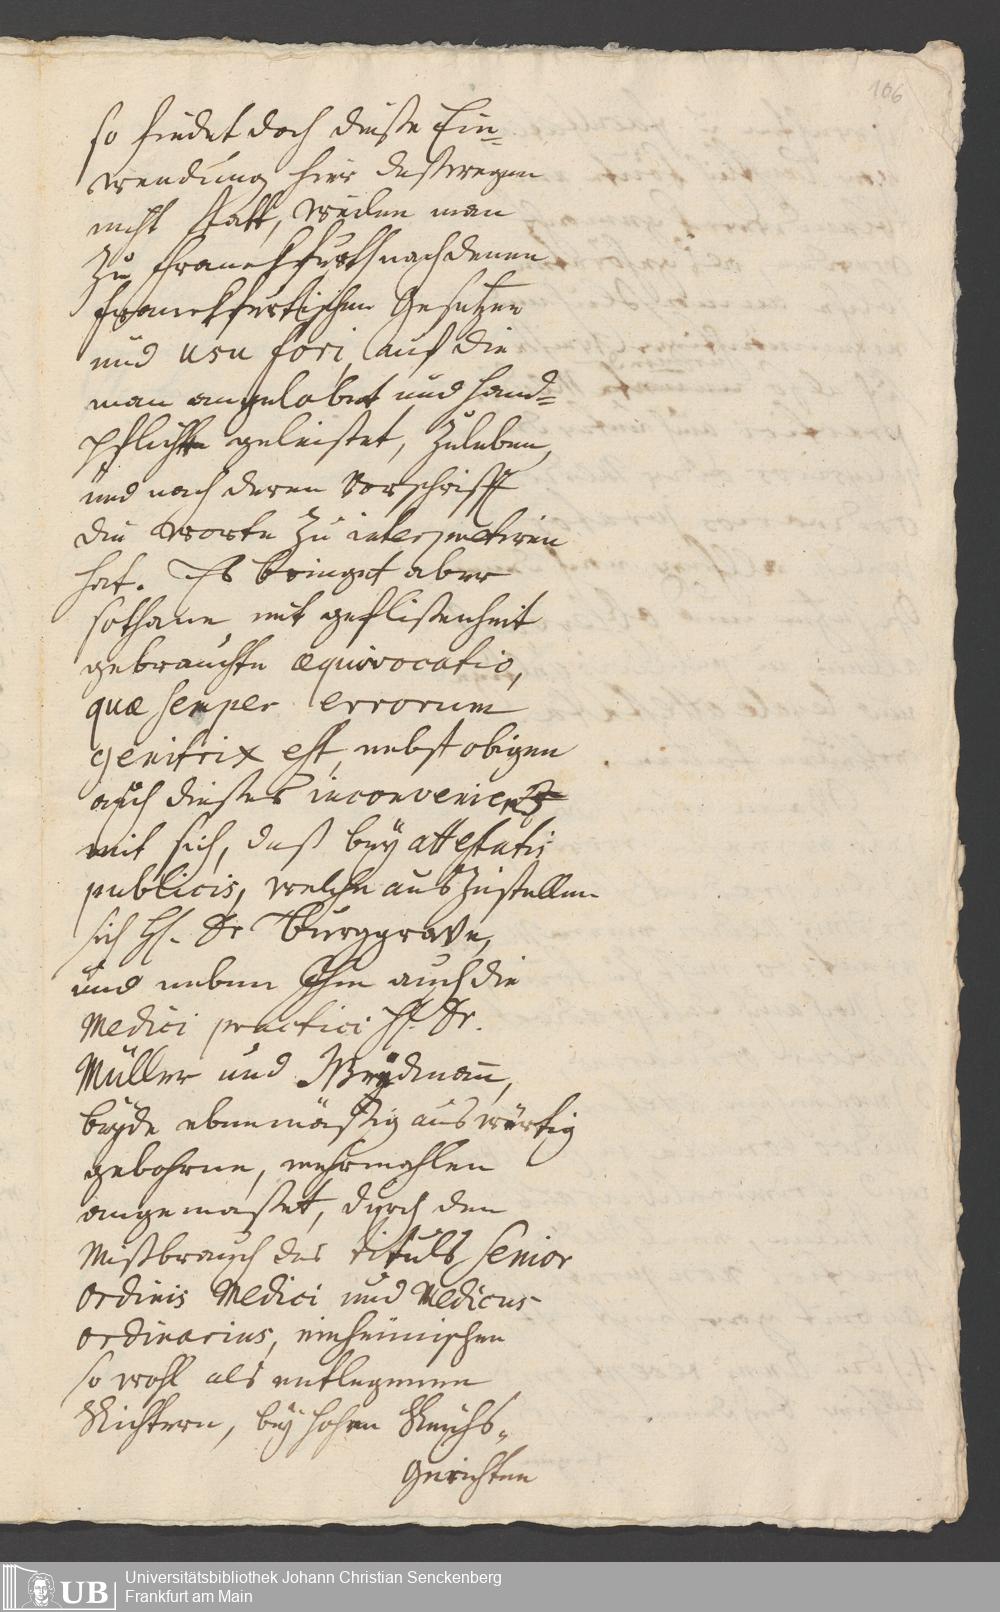 106
so findet doch dieße Ein-
wendung hier deßwegen
nicht statt, weilen man
zu Franckfurth nach denen
franckfurtischen Gesetzen
und usu fori, auf die
man angelobet und hand-
pflichten geleistet, zuleben,
und nach deren Vorschrifft
die worte zu interpretiren
hat. Es bringet aber
sothane mit geflißenheit
gebrauchte æquivocatio,
quæ semper errorum
genitrix est, nebst obigen
auch dießes inconvenienz
mit sich, daß bey attestatis
publicis, welche auszustellen
sich H. Dr Burggrave,
und neben Ihm auch die
Medici practici H. Dr.
Müller und Weydmann,
beyde ebenmäßig auswärtig
gebohrne, mehrmahlen
angemaßet, durch den
Mißbrauch des tituls Senior
Ordinis Medici und Medicus
ordinarius, einheimischen
so wohl als entlegenen
Richtern, bey hohen Reichs-
Gerichten
UB
Universitätsbibliothek Johann Christian Senckenberg
Frankfurt am Main